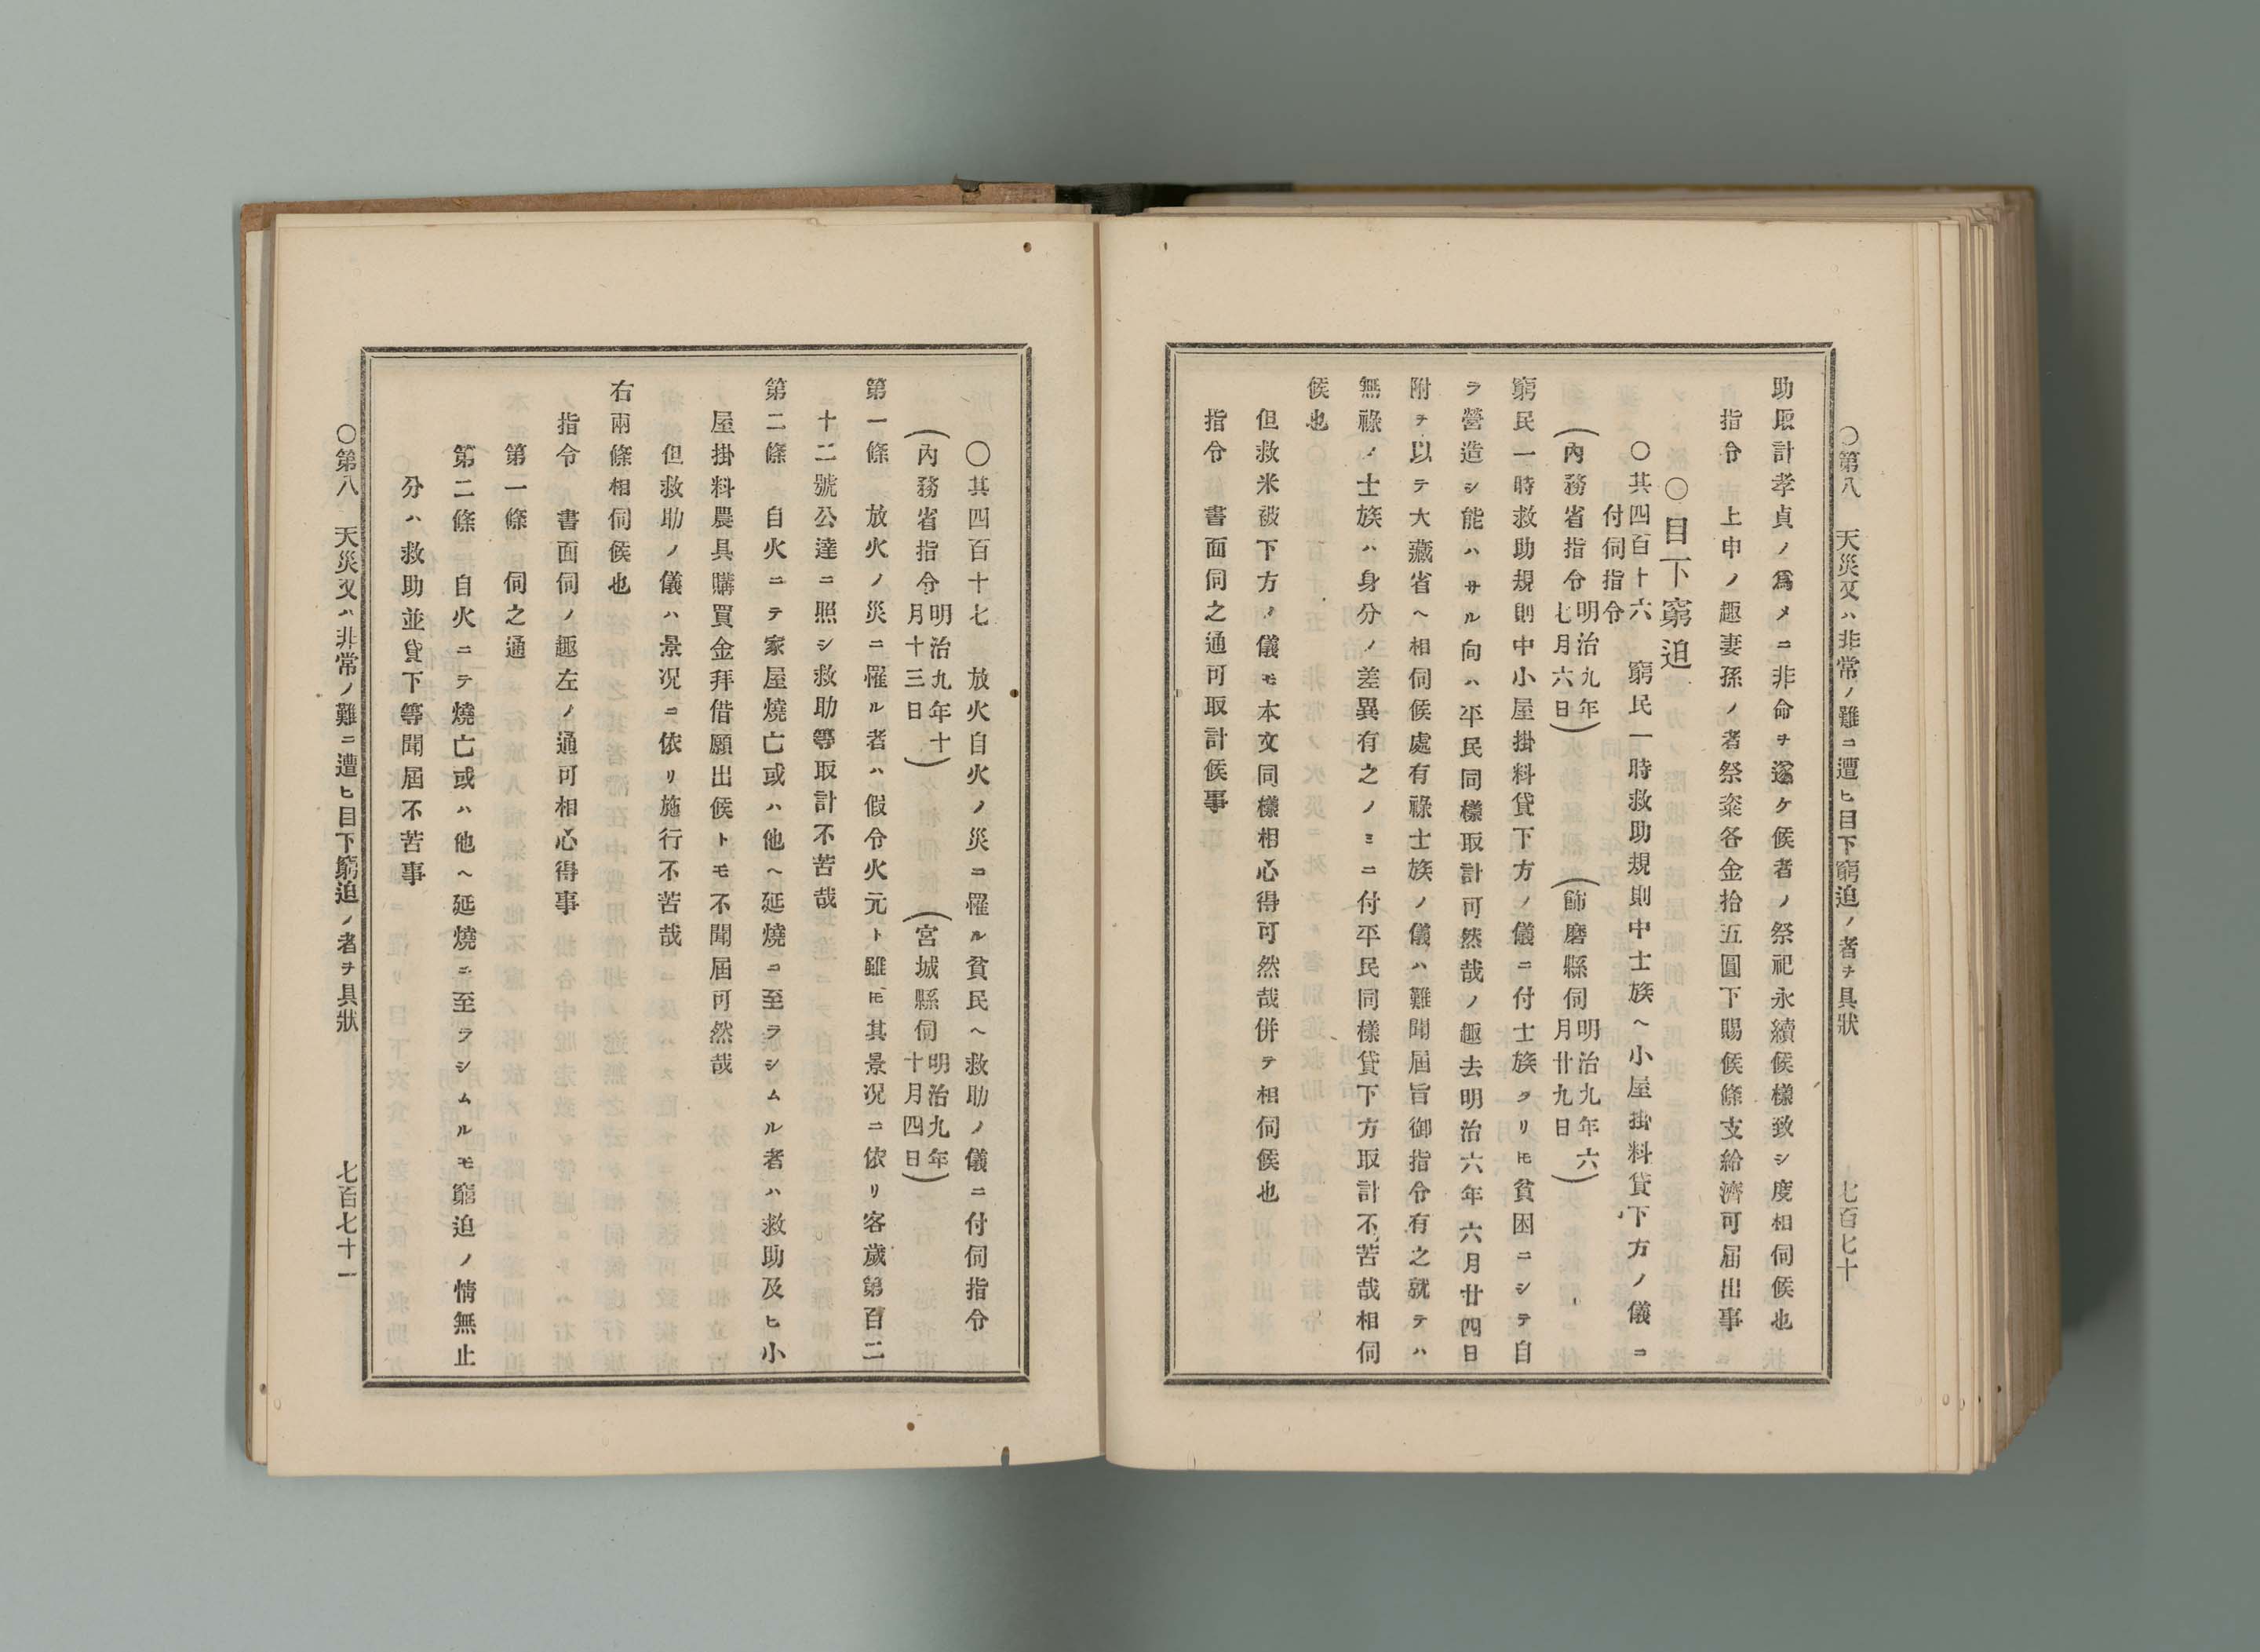 〇第八　天災又ハ非常ノ難ニ遭ヒ目下窮迫ノ者ヲ具狀　七百七十
助取計孝貞ノ爲メニ非命ヲ遂ケ候者ノ祭祀永續候樣致シ度相伺候也
指令　上申ノ趣妻孫ノ者祭粢各金拾五圓下賜候條支給濟可屆出事
〇目下窮迫
〇其四百十六　窮民一時救助規則中士族ヘ小屋掛料貸下方ノ儀ニ
付伺指令
（內務省指令明治九年七月六日）　（飾磨縣伺明治九年六月廿九日）
窮民一時救助規則中小屋掛料貸下方ノ儀ニ付士族タリ𪜈貧困ニシテ自
ラ營造シ能ハサル向ハ平民同樣取計可然哉ノ趣去明治六年六月廿四日
附ヲ以テ大藏省ヘ相伺候處有祿士族ノ儀ハ難聞屆旨御指令有之就テハ
無祿ノ士族ハ身分ノ差異有之ノミニ付平民同樣貸下方取計不苦哉相伺
候也
但救米被下方ノ儀モ本文同樣相心得可然哉併テ相伺候也
指令　書面伺之通可取計候事
〇其四百十七　放火自火ノ災ニ罹ル貧民ヘ救助ノ儀ニ付伺指令
（內務省指令明治九年十月十三日）　（宮城縣伺明治九年十月四日）
第一條　放火ノ災ニ罹ル者ハ假令火元ト雖𪜈其景况ニ依リ客歲第百二
十二號公達ニ照シ救助等取計不苦哉
第二條　自火ニテ家屋燒亡或ハ他ヘ延燒ニ至ラシムル者ハ救助及ヒ小
屋掛料農具購買金拜借願出候トモ不聞屆可然哉
但救助ノ儀ハ景况ニ依リ施行不苦哉
右兩條相伺候也
指令　書面伺ノ趣左ノ通可相心得事
第一條　伺之通
第二條　自火ニテ燒亡或ハ他ヘ延燒ニ至ラシムルモ窮迫ノ情無止
分ハ救助並貸下等聞屆不苦事
〇第八　天災又ハ非常ノ難ニ遭ヒ目下窮迫ノ者ヲ具狀　七百七十一